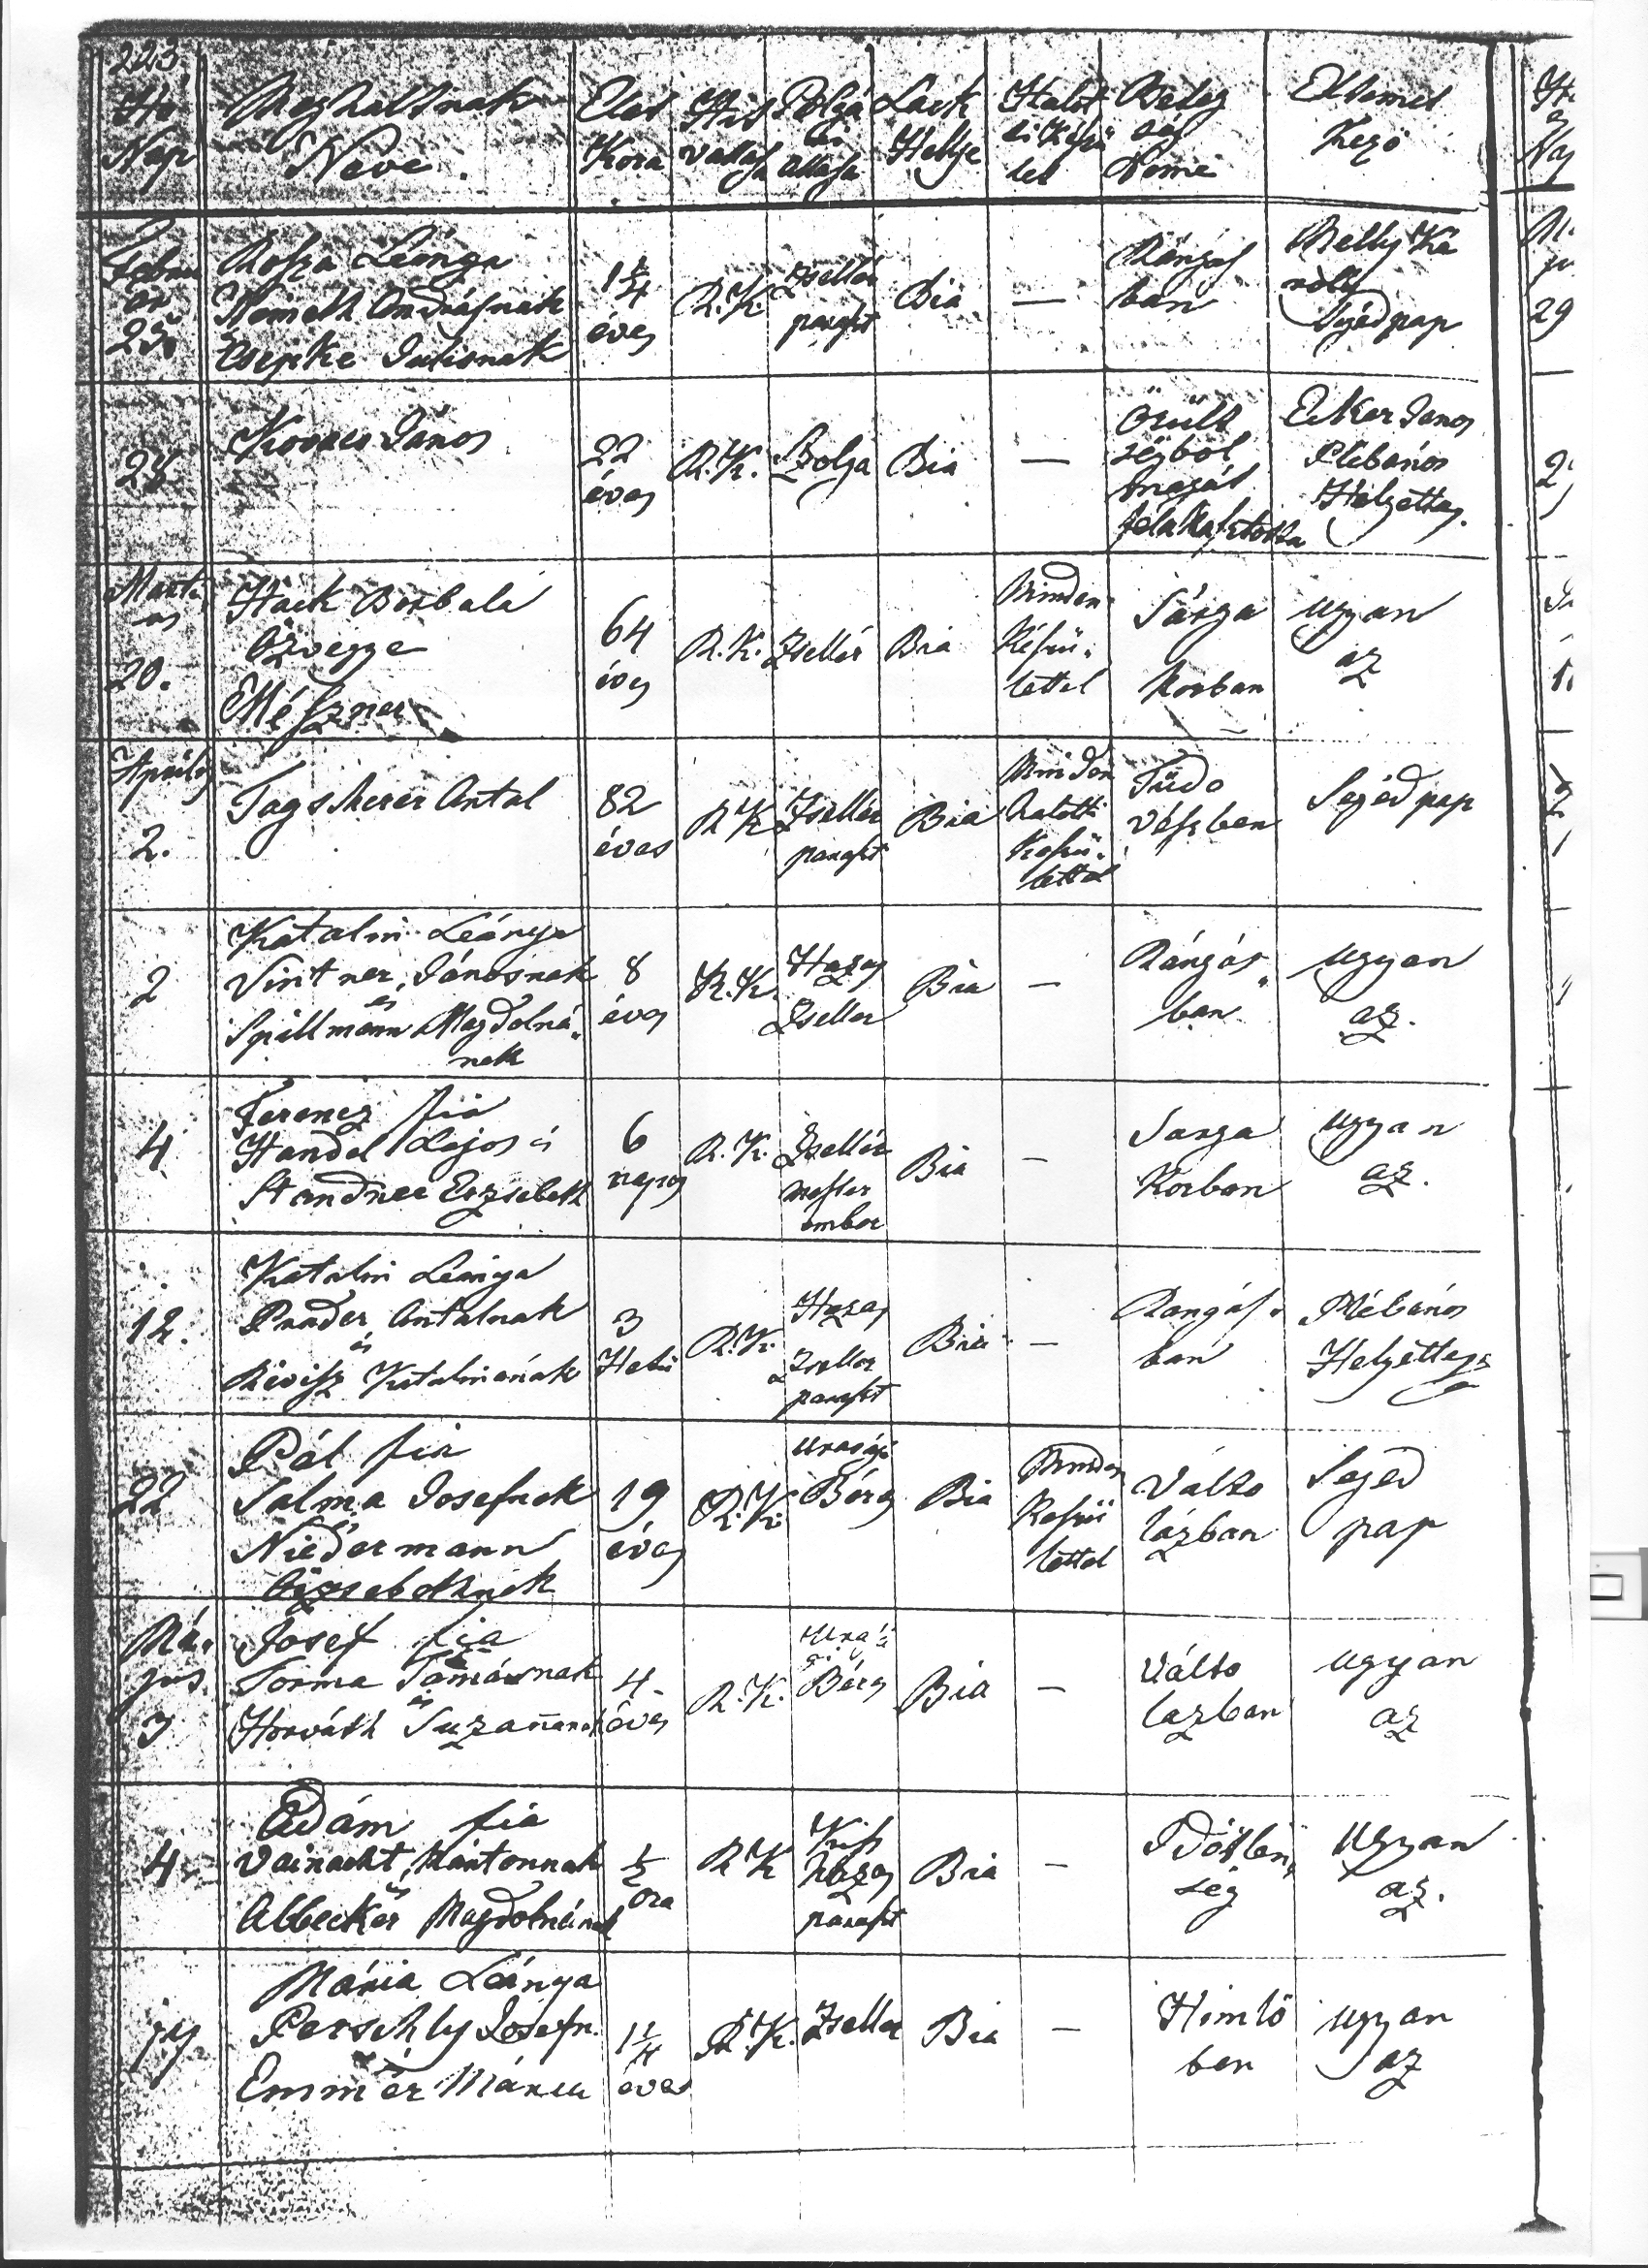 223.
Hó Nap
Meghaltnak Neve.
Élet Kora
Hit vallása
Polgári állása
Lack Hellye
Halotti Készület
Beteg ség Neme
Eltemet kező
Február 25.
Rosza Leánya
Németh Andrásnak
Csepke Julisnak
1 1/4 éves
R. K.
Zsellér paraszt
Bia
—
Rángás ban
Melly Károlly Segédpap
28
Kovács János
22 éves
R. K.
Szolga
Bia
—
Őrült ségből magát felakasztotta
Ecker Janos Plébános Helyettes.
Marti us 20.
Hack Borbála
Özvegye
Mészner
64 éves
R. K.
Zsellér
Bia
Minden Készü. lettel
Sárga Korban
ugyan az
Aprilis 2.
Tagscherer Antal
82 éves
R K
Zsellér paraszt
Bia
Minden halotti Készü. lettel
Tüdo vészben
Segéd pap
2
Katalin Leánya
Vintner Jánosnak
és
Spillmann Magdolná.
nak
8 éves
R. K.
Hazas Zseller
Bia
—
Rángás ban
ugyan az.
4
Ferencz fia
Handel Lajos és
Standner Erzsebeth
6 napos
R. K.
Zsellér mester ember
Bia
—
Sarga Korban
ugyan az.
12.
Katalin Leánya
Antalnak
és
Katalinának
3 Hetü
R. K.
Hazas Zseller paraszt
Bia
—
Rangás ban
Plébános Helyettes
22
Pál fia
Salma Josefnek
Niedermann
Erzsebethnek
19 éves
R. K.
Urasági Béres
Bia
Minden Keszü lettel
Valto lázban
Seged pap
Má. jus. 3
Josef fia
Torma Tamásnak
és
Horváth Suzannanak
4 éves
R. K.
Béres
Bia
—
Válto lazban
ugyan az
4
Ádám fia
Vainacht Mártonnak
és
Albecker Magdolnának
1/2 óra
R K
Kis házas paraszt
Bia
—
Idötlen ség
Ugyan az.
Mária Leánya
Perschly Josefn.
Emmer Mária
éves
R. K.
Zseller
Bia
—
Himlö ben
ugyan az
29